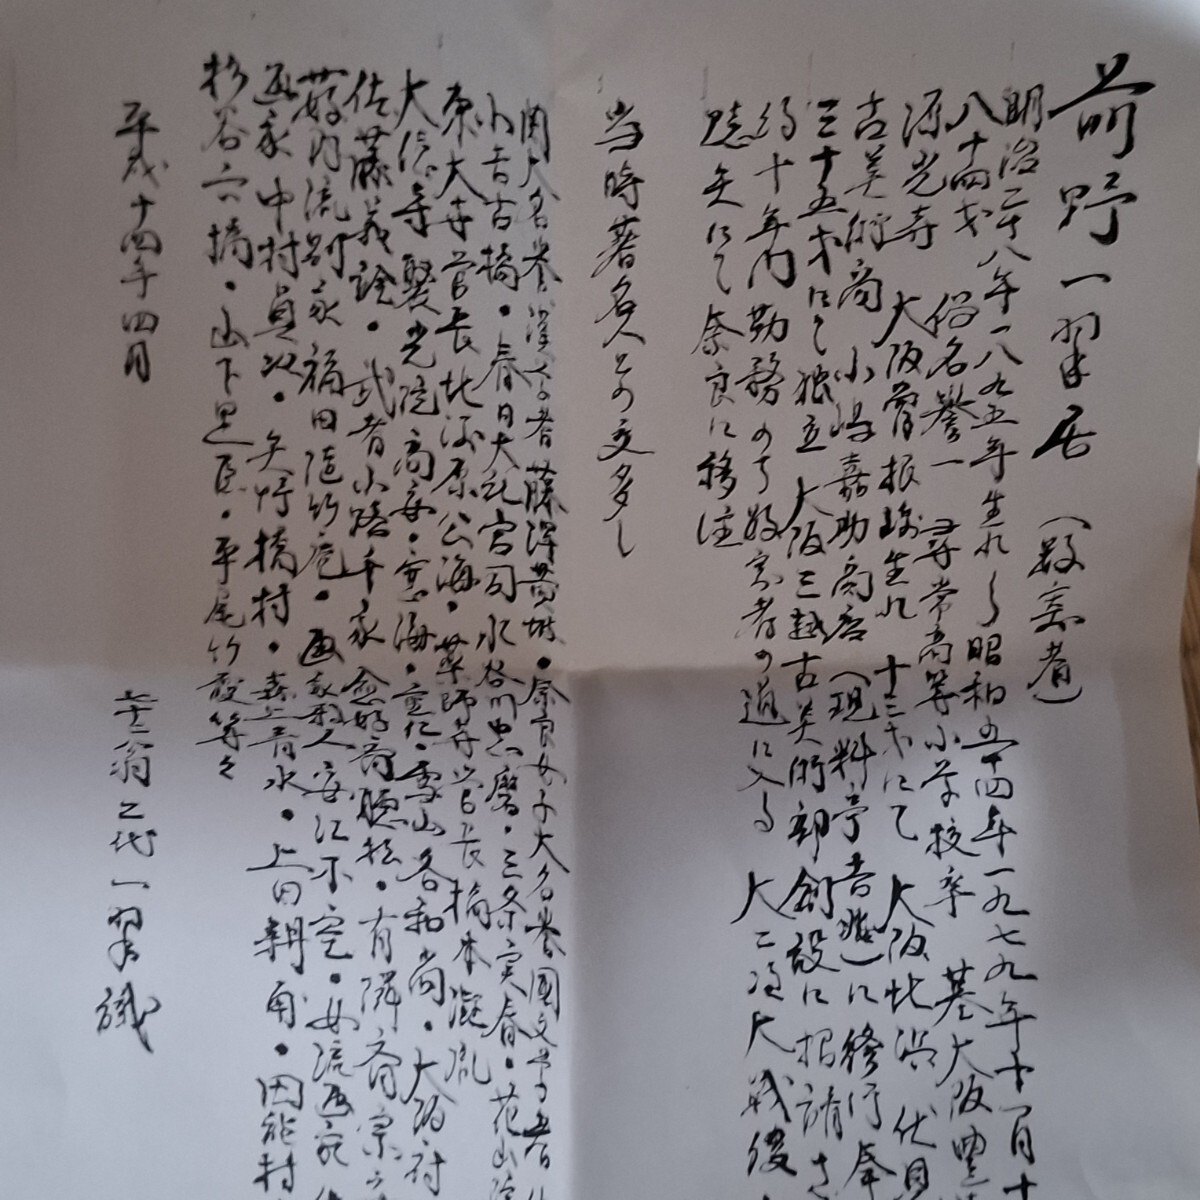 前野一翠居(数寄者)
明治二十八年一八九五年生れ〜昭和五十四年一九七九年十一月十
八十四才 俗名譽一 尋常高等小学校卒 墓大阪豊
源光寺 大阪 生れ 十三才にて 大阪北浜 伏見
古美術商 小嶋嘉助商店(現料亭吉兆)に修行奉
三十五才にて独立 大阪三越古美術部創設に招請さ
約十年内勤務のち数寄者の道に入る 大二次大戦後
にて奈良に移住
当時著名人との交多し
関大名誉漢学者藤澤黄坡・奈良女子大名誉国文学者
小吉古橋・春日大社宮司水谷川忠麿・三条実春・花山院
東大寺管長北河原公海・薬師寺管長橋本凝胤
大徳寺聚光院高安・寛海・雪山各和尚・大阪府
佐藤義詮・武者小路千家愈好斎聴松・有隣斎宗
薮内流別家福田 竹庵・画家 人安江不空・女流画家
画家中村貞以・矢野橋村・森 青水・上田 甫・因 村
杉谷六橋・山下 ・平尾竹 等々
平成十四年四月
翁 二代一翠 識